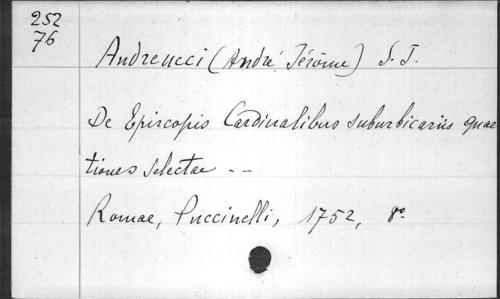 252
76
Andreucci (André Jérôme) S. J.
De Episcopis Cardinalibus suburbicariis quae
tiones selectae --
Romae, Puccinelli, 1752, 8º